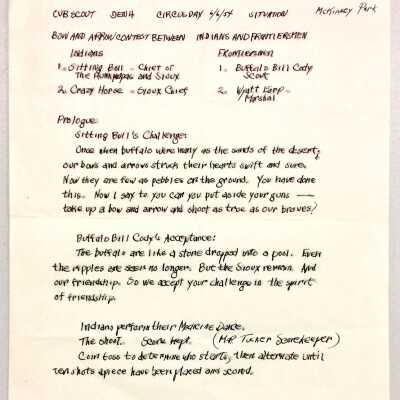 CUB SCOUT DEN 4 CIRCUS DAY 6/6/54 SITUATION McKinley Park
BOW AND ARROW CONTEST BETWEEN INDIANS AND FRONTIERSMEN
Indians Frontiersmen
1. Sitting Bull - Chief of The Hunkpapas and Sioux 1. Buffalo Bill Cody Scout
2. Crazy Horse - Sioux Chief 2. Wyatt Earp - Marshal
Prologue:
Sitting Bull's Challenge:
Once when buffalo were many as the sands of the desert,
our bows and arrows struck their hearts swift and sure.
Now they are few as pebbles on the ground. You have done
this. Now I say to you can you put aside your guns —
take up a bow and arrow and shoot as true as our braves?
Buffalo Bill Cody's Acceptance:
The buffalo are like a stone dropped into a pool. Even
the ripples are seen no longer. But the Sioux remain. And
our friendship. So we accept your challenge in the spirit
of friendship.
Indians perform their Medicine Dance.
The shoot. Score kept. (Mr Tucker Scorekeeper)
Coin toss to determine who starts, then alternate until
ten shots apiece have been placed and scored.